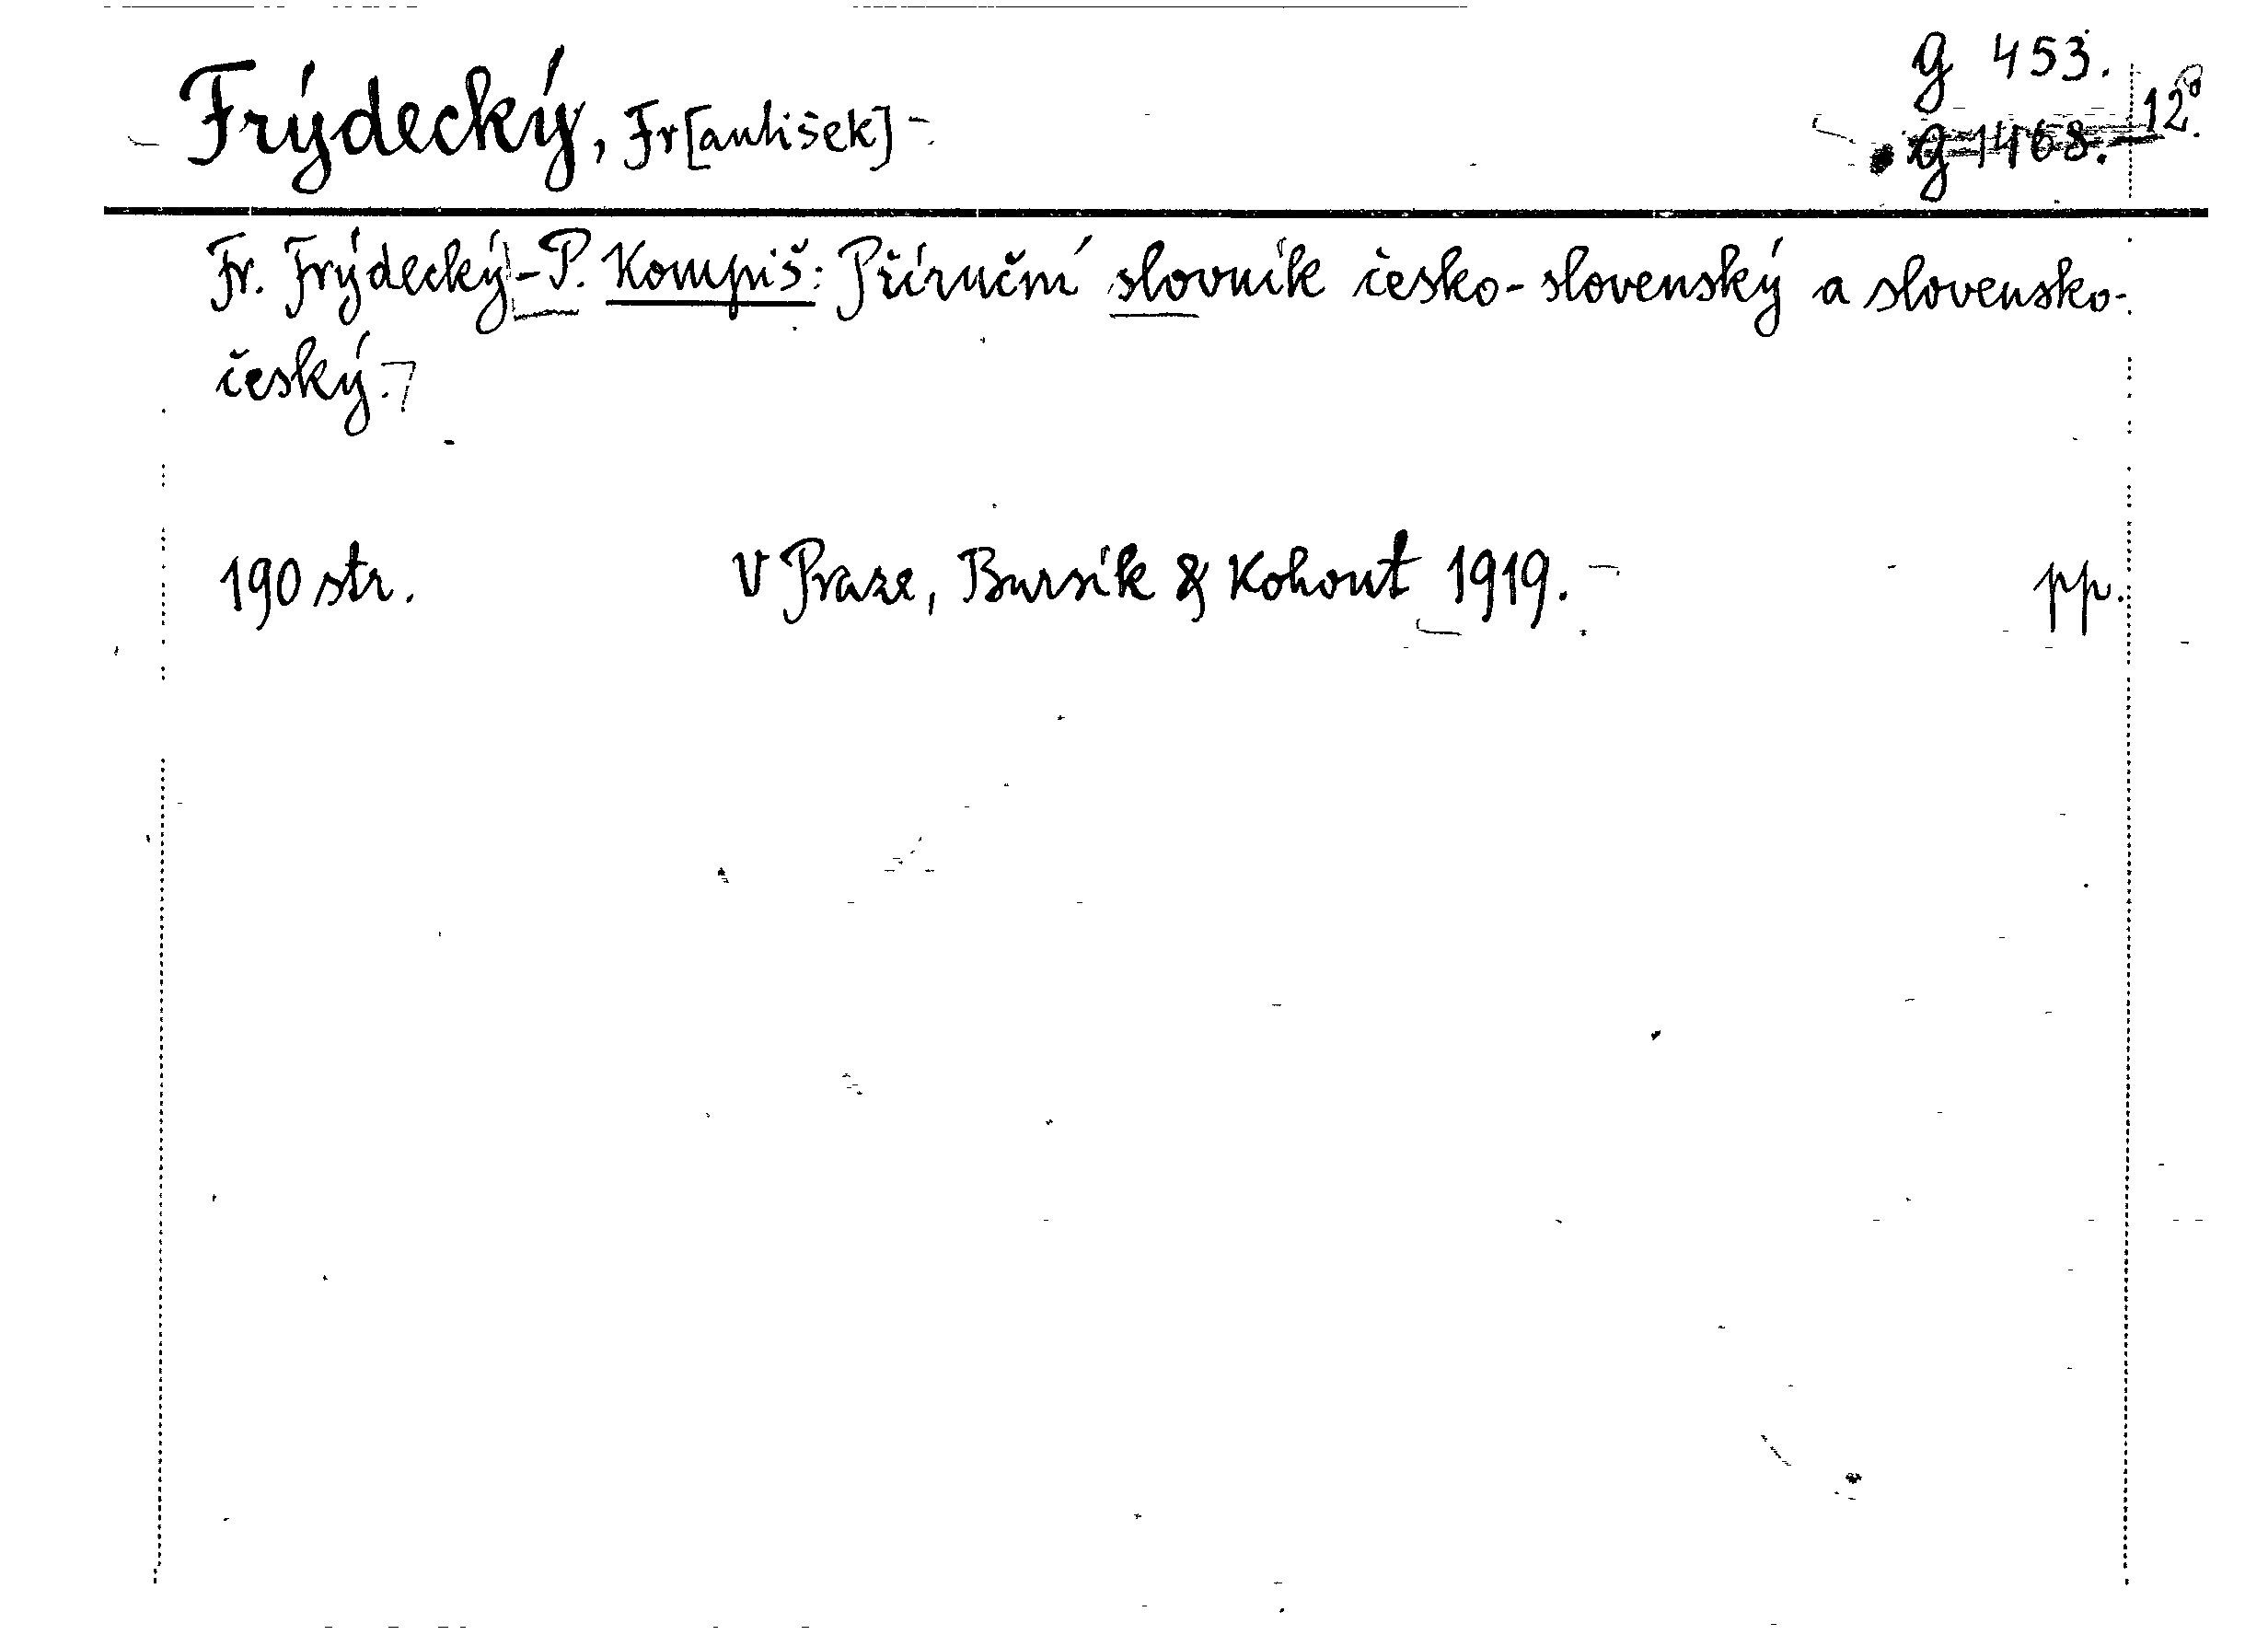 Frýdecký, Fr[antišek]
g 453.
12°.
g 1468.
Fr. Frýdecký - P. Kompiš: Příruční slovník česko-slovenský a slovensko-
český.
190 str. V Praze, Bursík & Kohout 1919. pp.